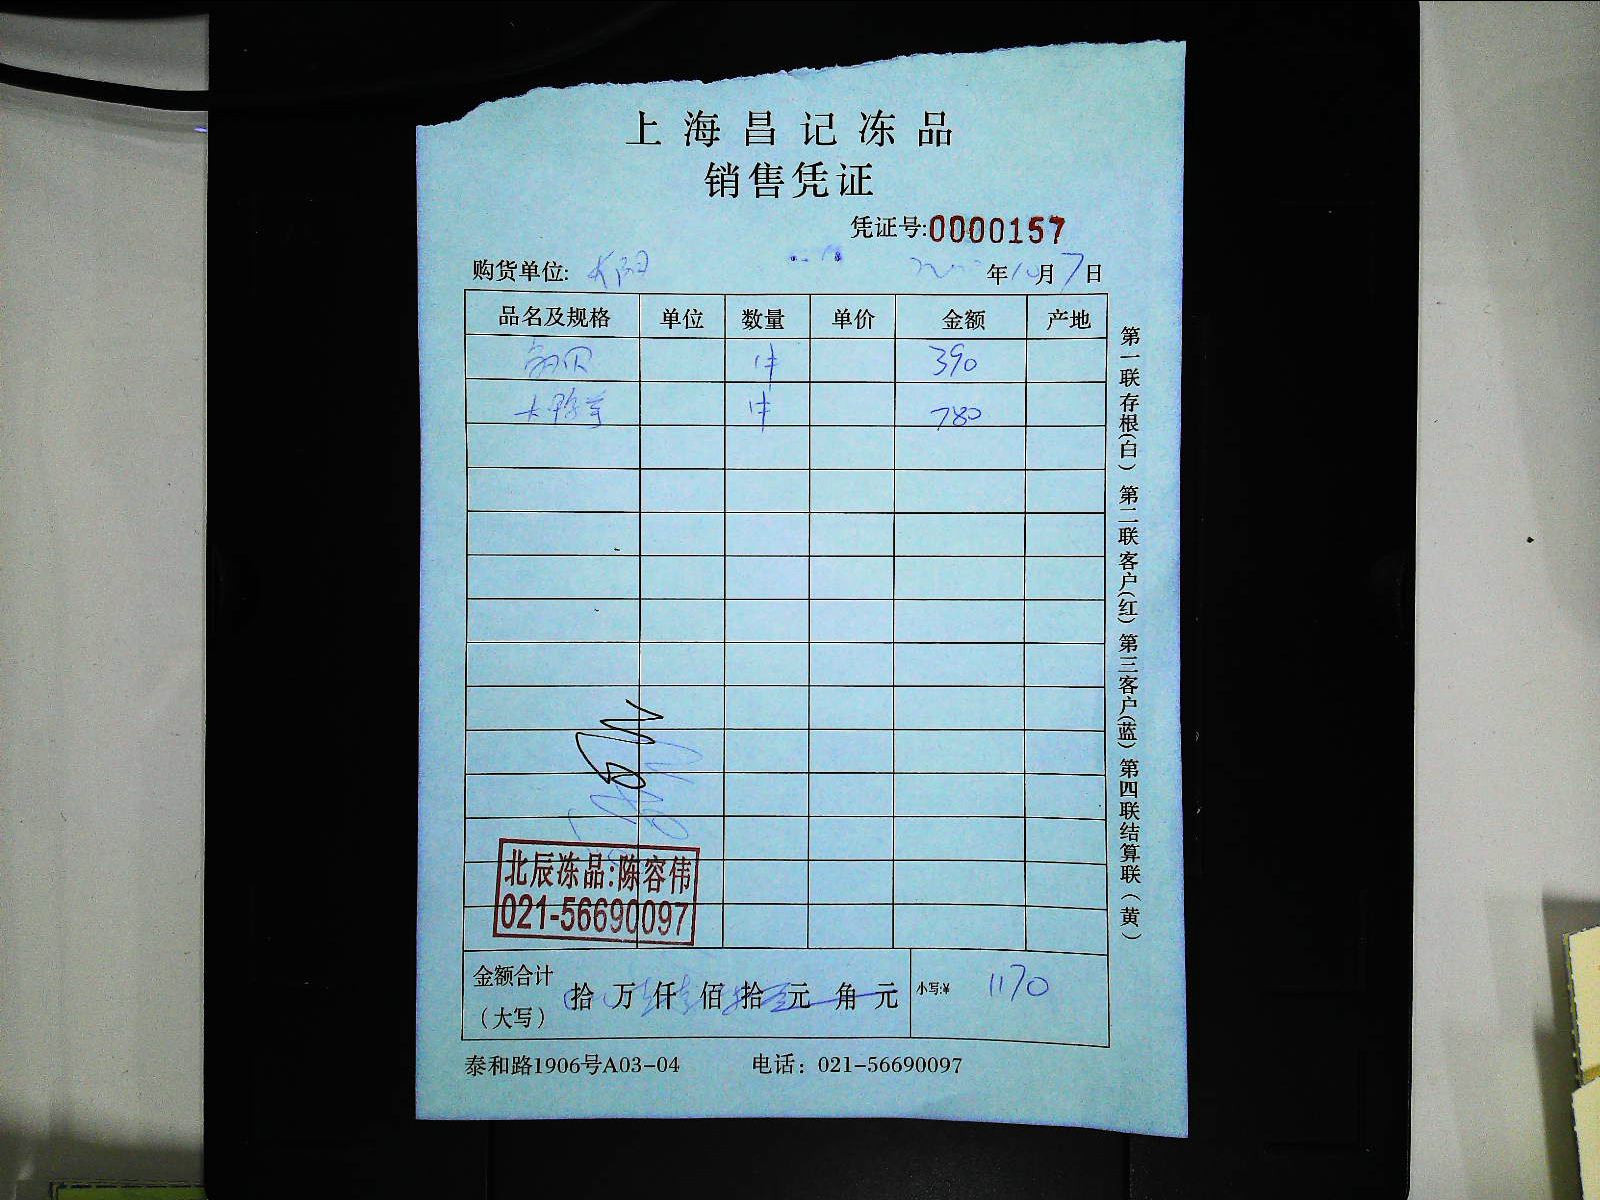 上海昌记冻品
销售凭证
凭证号:0000157
购货单位: 年10月7日
品名及规格 单位 数量 单价 金额 产地
1件 390
1件 780
北辰冻品:陈容伟
021-56690097
金额合计(大写) 拾 万 仟 佰 拾 元 角 元 小写:¥ 1170
泰和路1906号A03-04 电话：021-56690097
第一联存根(白) 第二联客户(红) 第三客户(蓝) 第四联结算联(黄)